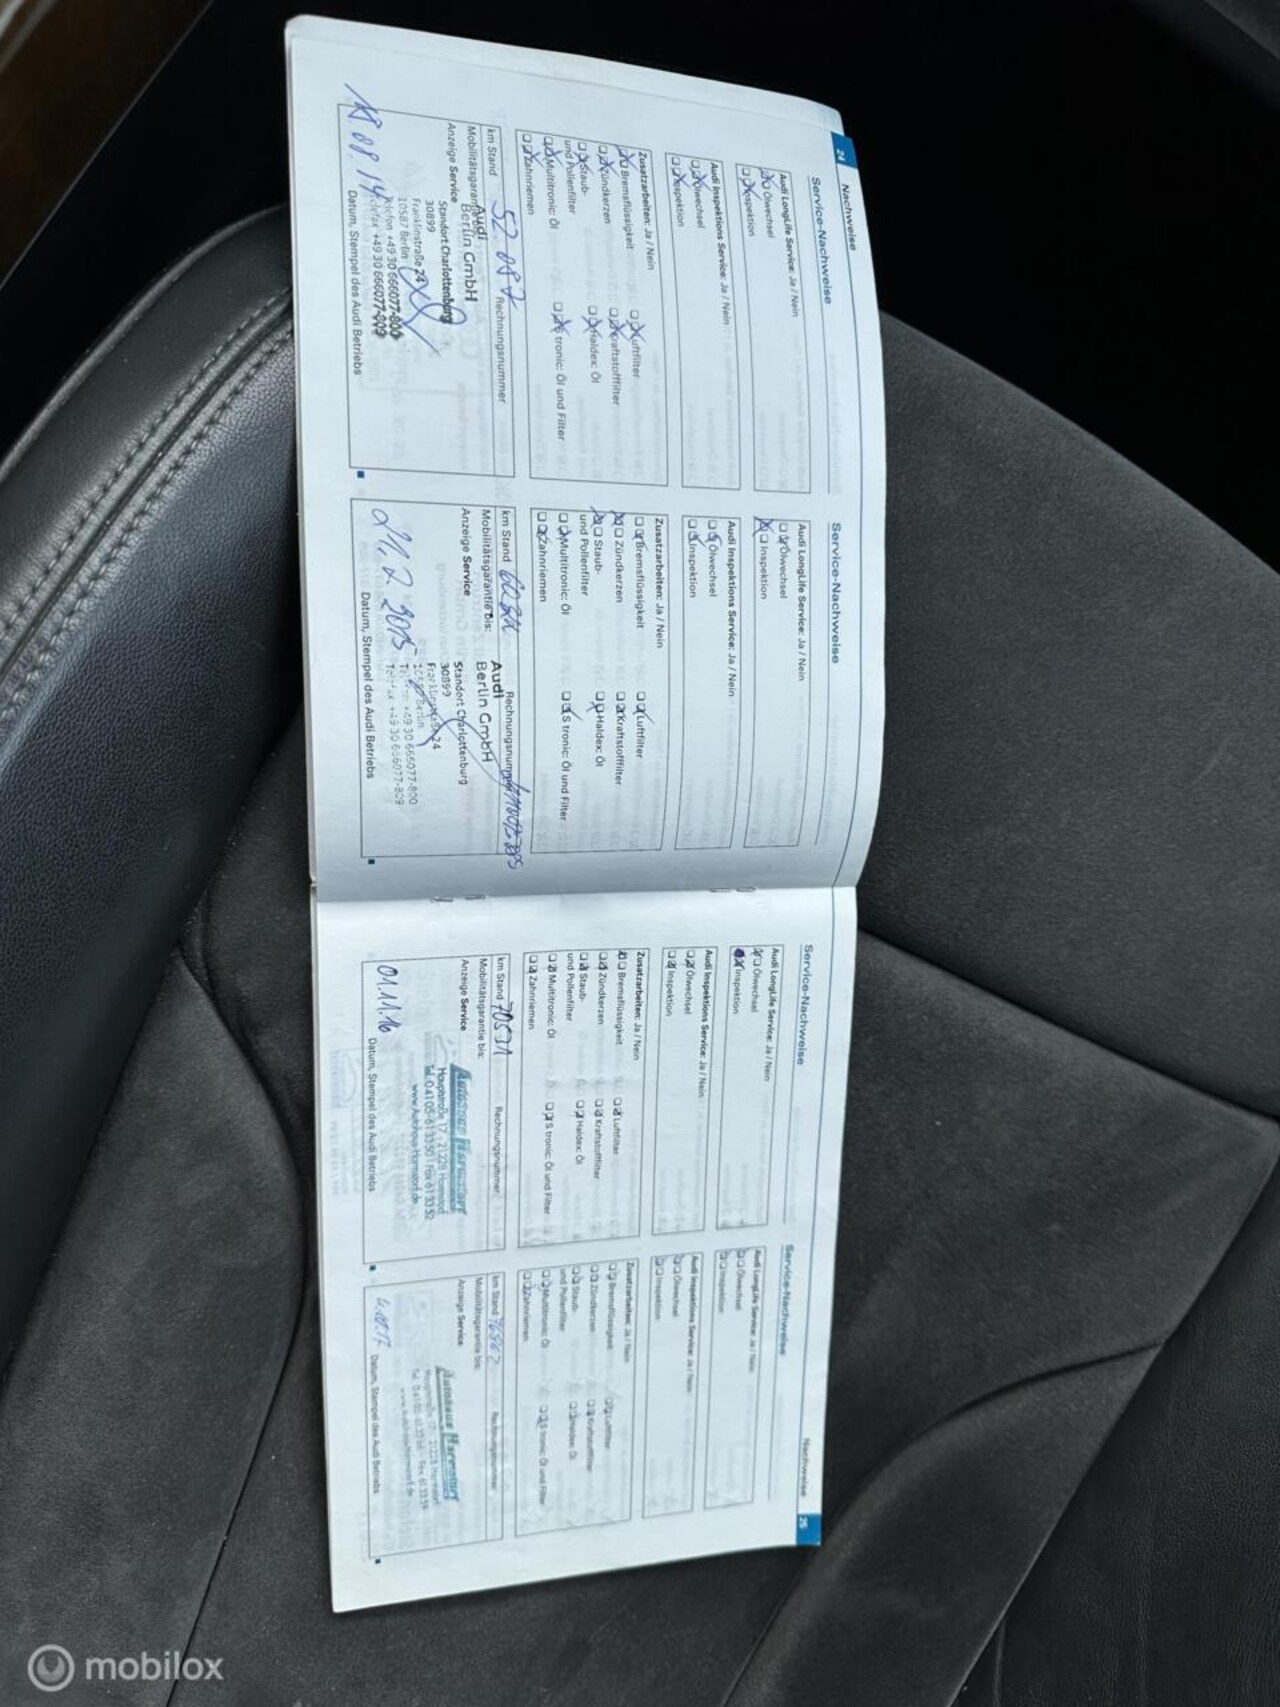 24
Nachweise
Service-Nachweise
Audi LongLife Service: Ja / Nein
Ölwechsel
Inspektion
Audi Inspektions Service: Ja / Nein
Ölwechsel
Inspektion
Zusatzarbeiten: Ja / Nein
Bremsflüssigkeit Luftfilter
Zündkerzen Kraftstofffilter
Staub- Haldex: Öl
und Pollenfilter
Multitronic: Öl S tronic: Öl und Filter
Zahnriemen
km Stand 52.087 Rechnungsnummer
Mobilitätsgarantie
Anzeige Service
Audi
Berlin GmbH
Standort Charlottenburg
30899
Franklinstraße 24
10587 Berlin
Telefon +49 30 666077-800
Telefax +49 30 666077-809
18.08.14
Datum, Stempel des Audi Betriebs
Service-Nachweise
Audi LongLife Service: Ja / Nein
Ölwechsel
Inspektion
Audi Inspektions Service: Ja / Nein
Ölwechsel
Inspektion
Zusatzarbeiten: Ja / Nein
Bremsflüssigkeit Luftfilter
Zündkerzen Kraftstofffilter
Staub- Haldex: Öl
und Pollenfilter
Multitronic: Öl S tronic: Öl und Filter
Zahnriemen
km Stand Rechnungsnummer
Mobilitätsgarantie bis:
Anzeige Service
Audi
Berlin GmbH
Standort Charlottenburg
30899
Franklinstraße 24
10587 Berlin
Telefon +49 30 666077-800
Telefax +49 30 666077-809
21.2.2015
Datum, Stempel des Audi Betriebs
Service-Nachweise
Audi LongLife Service: Ja / Nein
Ölwechsel
Inspektion
Audi Inspektions Service: Ja / Nein
Ölwechsel
Inspektion
Zusatzarbeiten: Ja / Nein
Bremsflüssigkeit Luftfilter
Zündkerzen Kraftstofffilter
Staub- Haldex: Öl
und Pollenfilter
Multitronic: Öl S tronic: Öl und Filter
Zahnriemen
km Stand 70531 Rechnungsnummer
Mobilitätsgarantie bis:
Anzeige Service
Autohaus Harmstorf
Hauptstraße 17 · 21228 Harmstorf
Tel. 04105-613350 Fax 613352
www.Autohaus-Harmstorf.de
01.11.16
Datum, Stempel des Audi Betriebs
Nachweise
25
Service-Nachweise
Audi LongLife Service: Ja / Nein
Ölwechsel
Inspektion
Audi Inspektions Service: Ja / Nein
Ölwechsel
Inspektion
Zusatzarbeiten: Ja / Nein
Bremsflüssigkeit Luftfilter
Zündkerzen Kraftstofffilter
Staub- Haldex: Öl
und Pollenfilter
Multitronic: Öl S tronic: Öl und Filter
Zahnriemen
km Stand Rechnungsnummer
Mobilitätsgarantie bis:
Anzeige Service
Autohaus Harmstorf
Hauptstraße 17 · 21228 Harmstorf
Datum, Stempel des Audi Betriebs
mobilox